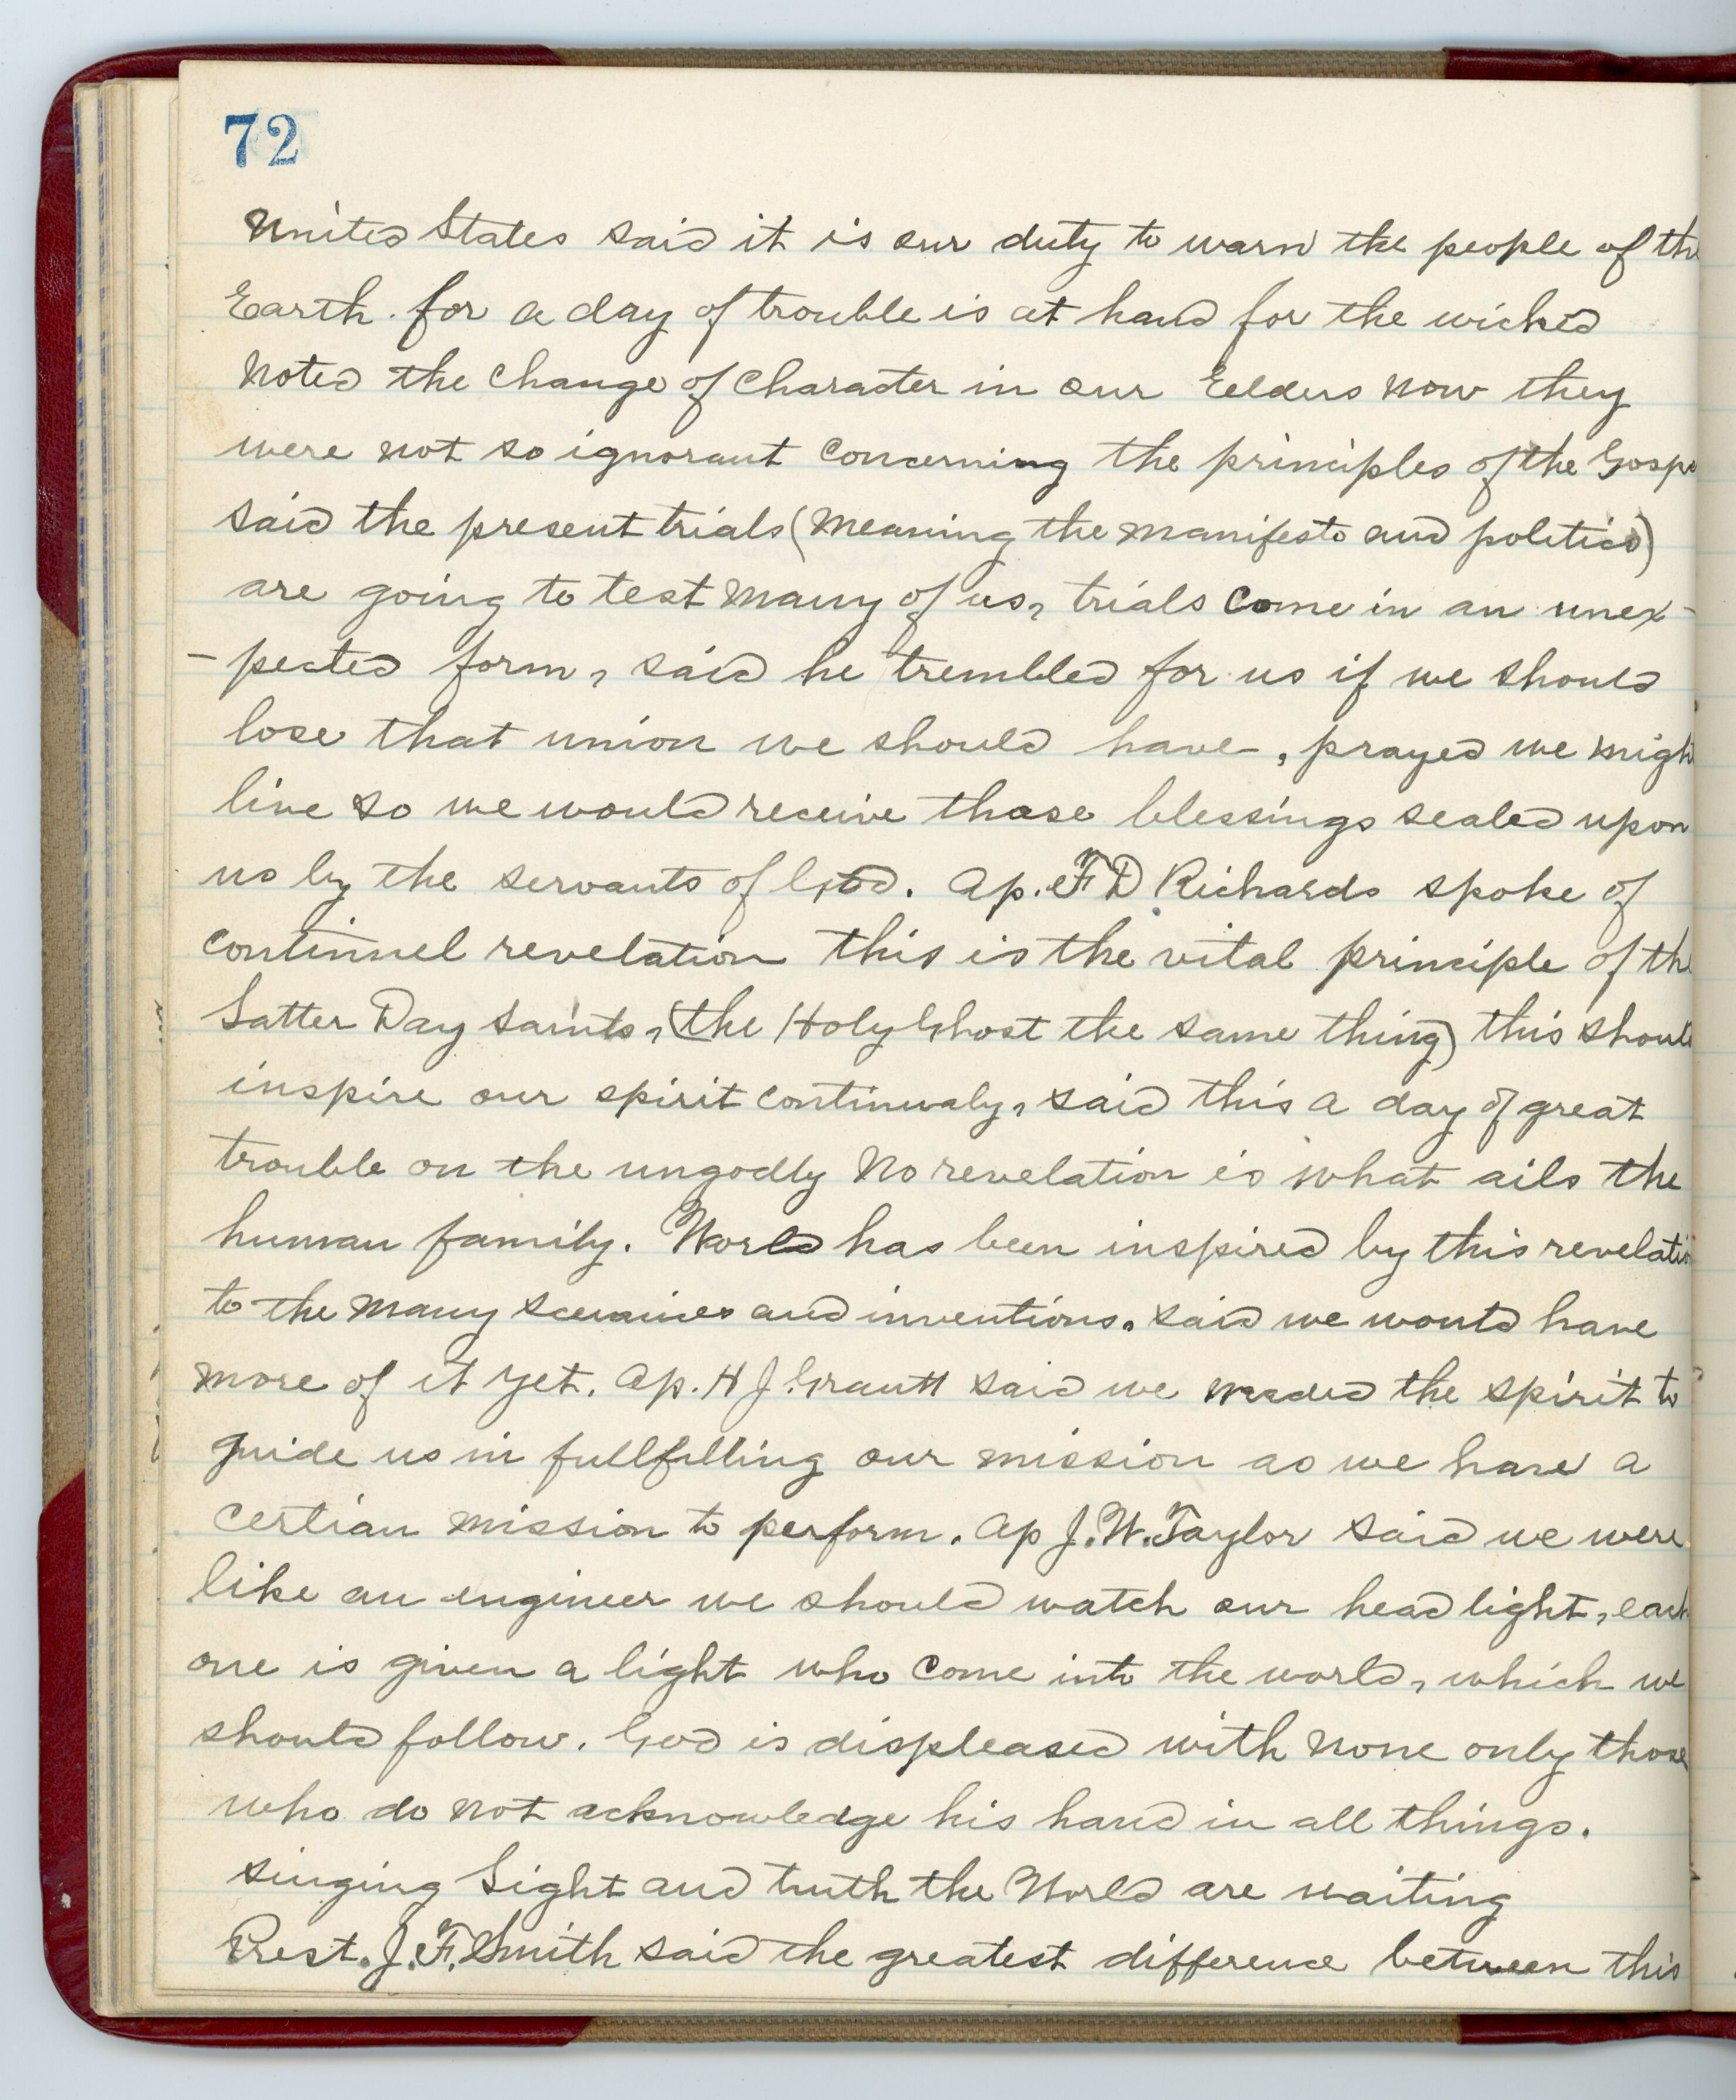 72
United States said it is our duty to warn the people of the
Earth. for a day of trouble is at hand for the wicked
Noted the change of character in our Eelders now they
were not so ignorant concerning the principles of the Gospe
said the present trials (meaning the manifesto and politics)
are going to test many of us, trials come in an unex-
-pected form, said he trembled for us if we should
lose that union we should have, prayed we might
live so we would receive those blessings sealed upon
us by the servants of God. Ap. F D Richards spoke of
continuel revelation this is the vital principle of the
Latter Day Saints, (the Holy Ghost the same thing) this should
inspire our spirit continualy, said this a day of great
trouble on the ungodly No revelation is what ails the
human family. World has been inspired by this revelatio
to the many and inventions. said we would have
more of it yet. Ap. H J. Grantt said we needed the spirit to
guide us in fullfilling our mission as we have a
certian mission to perform. Ap J. W. Taylor said we were
like an engineer we should watch our head light, each
one is given a light who come into the world, which we
should follow. God is displeased with none only those
who do not acknowledge his hand in all things.
singing Light and truth the World are waiting
Prest. J. F. Smith said the greatest difference between this